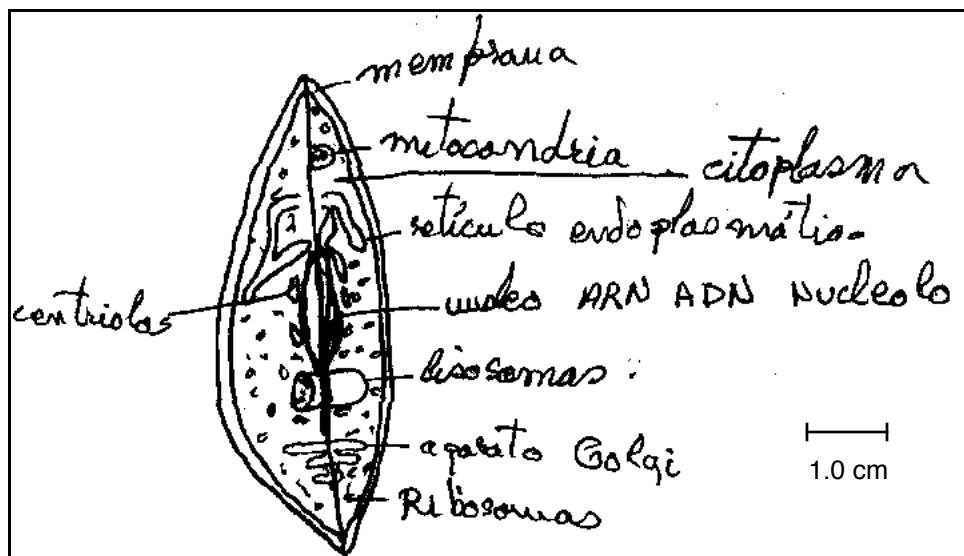 memprana
mitocondria
citoplasma
retículo endoplasmátio.
centriolas
nucleo ARN ADN Nucleolo
lisosomas.
aparato Golgi
Ribosomas
1.0 cm